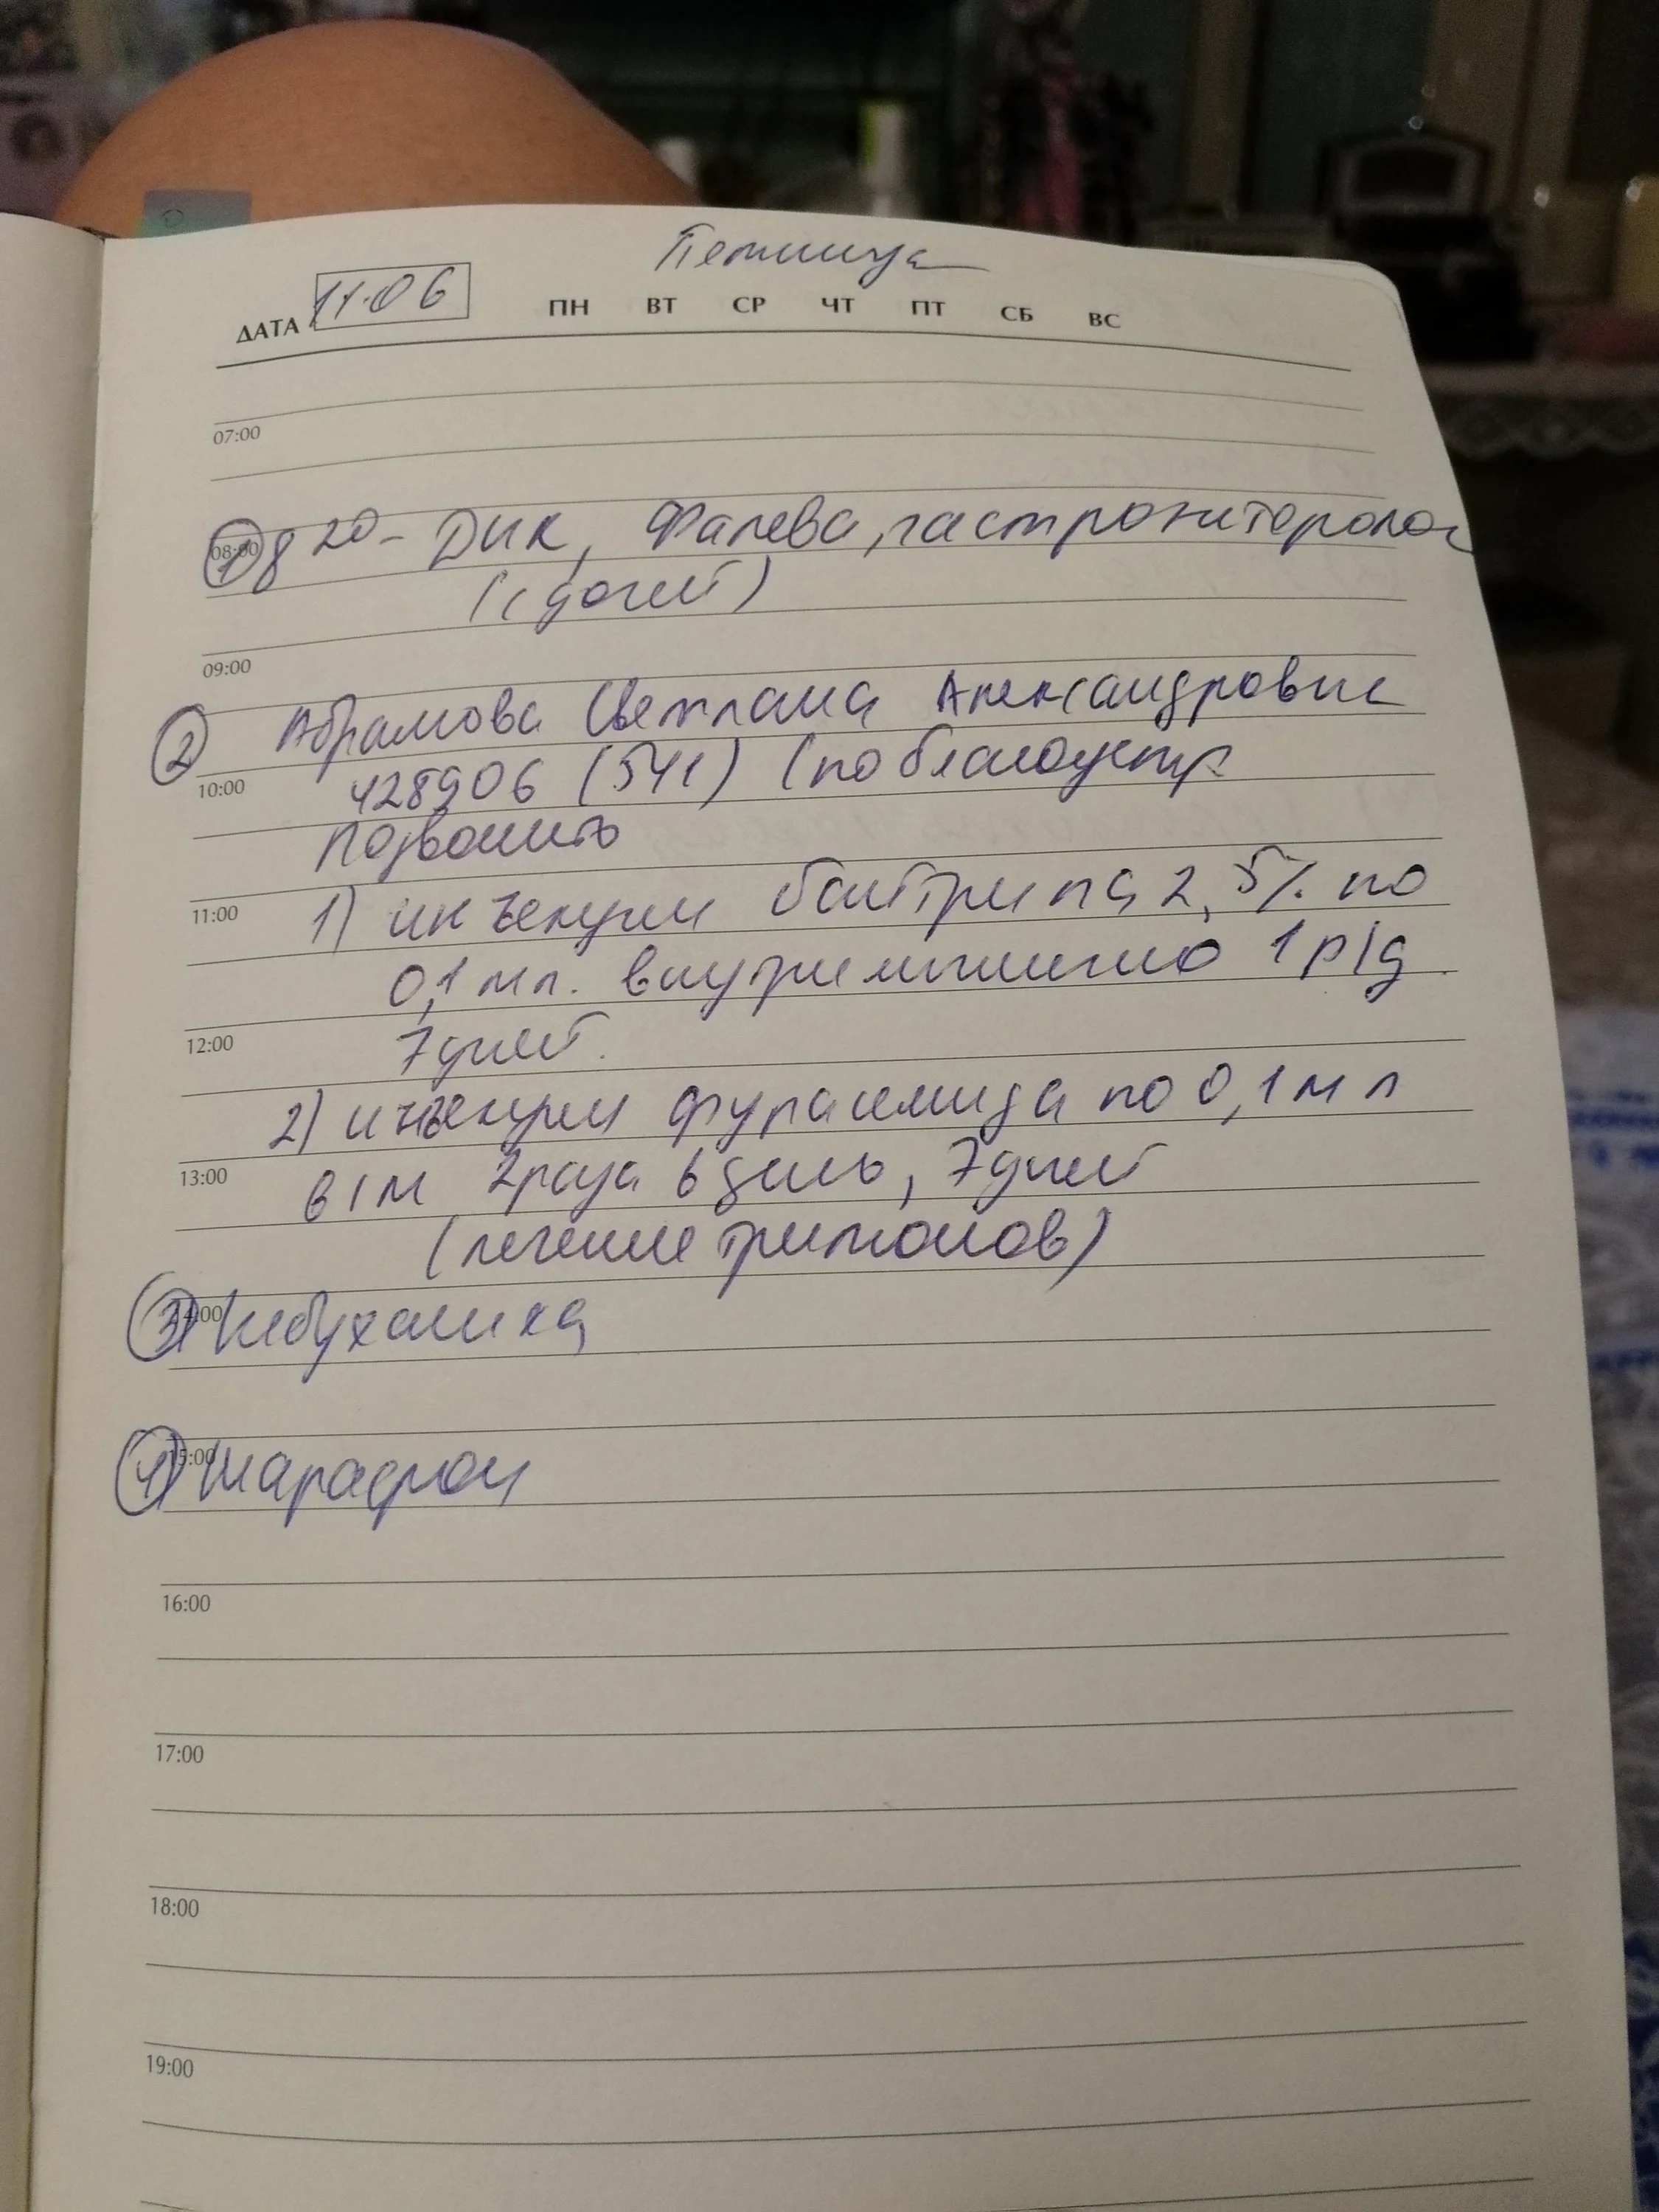 Пятница
ДАТА 11.06 ПН ВТ СР ЧТ ПТ СБ ВС
07:00
08:00
① 8 20 - ДИК, Фалева, гастроэнтеролог
(с дочей)
09:00
② Абрамова Светлана Александровна
10:00 428906 (541) (по благоустр
позвонить
11:00 1) инъекции байтрила 2,5% по
0,1 мл. внутримышечно 1 р/д
12:00 7 дней.
2) инъекции фурасемида по 0,1 мл
13:00 в/м 2 раза в день, 7 дней
(лечение тритонов)
14:00
③
15:00
④ Марафон
16:00
17:00
18:00
19:00